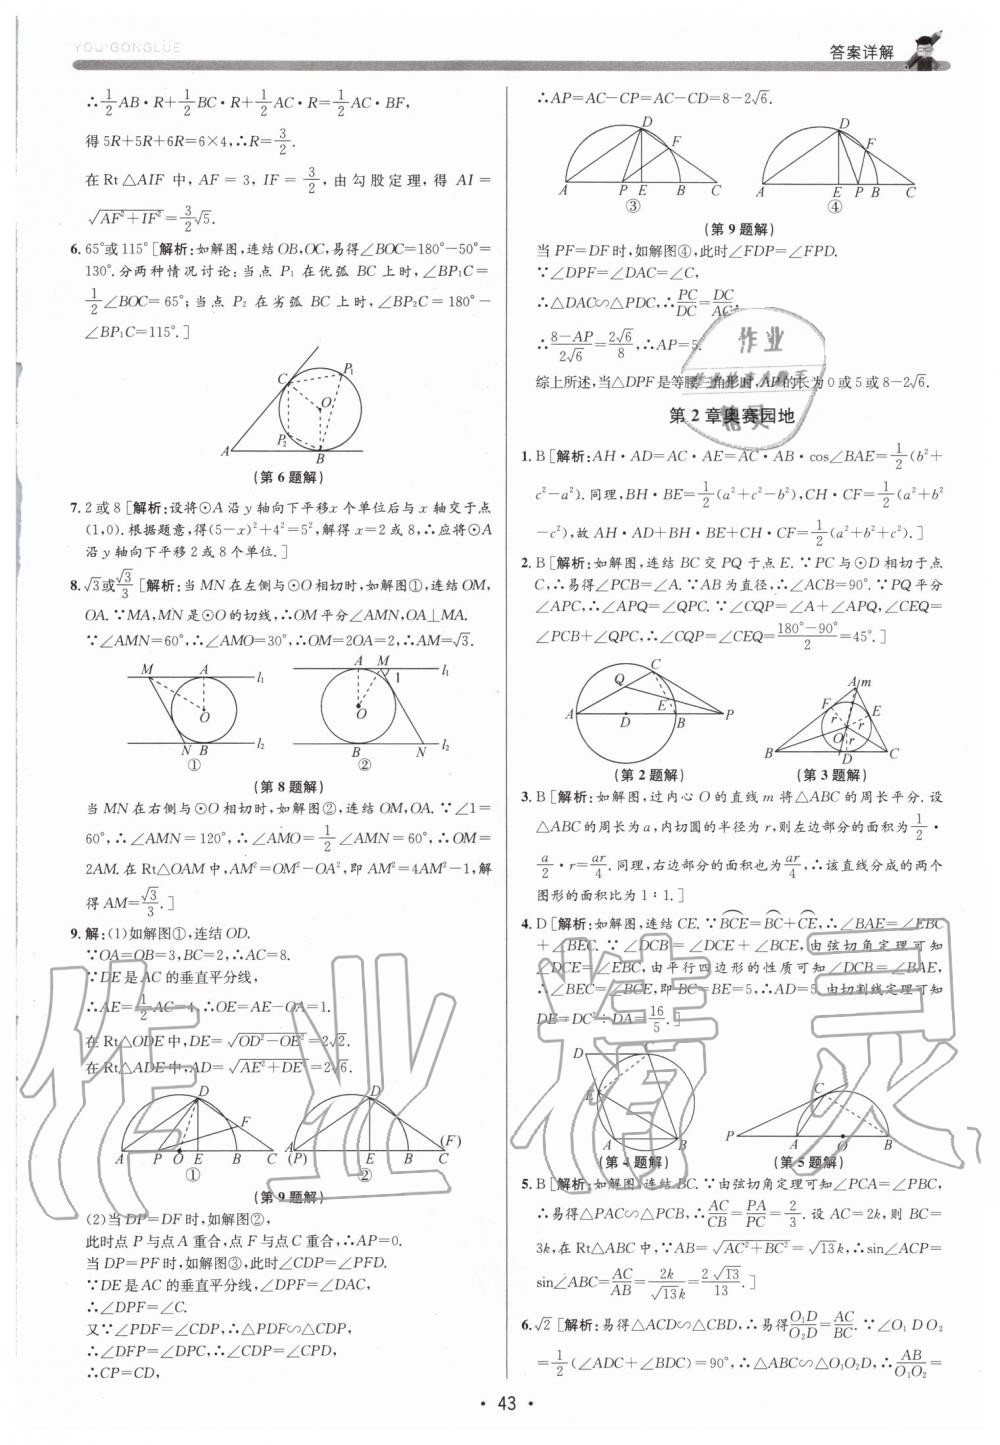 YOU·GONGLÜE
答案详解
∴1/2AB·R+1/2BC·R+1/2AC·R=1/2AC·BF,
得5R+5R+6R=6×4,∴R=3/2.
在Rt△AIF中,AF=3,IF=3/2,由勾股定理,得AI=
√(AF²+IF²)=3/2√5.
6. 65°或115° [解析:如解图,连结OB,OC,易得∠BOC=180°-50°=
130°.分两种情况讨论:当点P₁在优弧BC上时,∠BP₁C=
1/2∠BOC=65°;当点P₂在劣弧BC上时,∠BP₂C=180°-
∠BP₁C=115°.]
C P₁ O P₂ A B
(第6题解)
7. 2或8 [解析:设将⊙A沿y轴向下平移x个单位后与x轴交于点
(1,0).根据题意,得(5-x)²+4²=5²,解得x=2或8,∴应将⊙A
沿y轴向下平移2或8个单位.]
8. √3或√3/3 [解析:当MN在左侧与⊙O相切时,如解图①,连结OM,
OA.∵MA,MN是⊙O的切线,∴OM平分∠AMN,OA⊥MA.
∵∠AMN=60°,∴∠AMO=30°,∴OM=2OA=2,∴AM=√3.
M A l₁ O N B l₂ ①
A M l₁ 1 O B N l₂ ②
(第8题解)
当MN在右侧与⊙O相切时,如解图②,连结OM,OA.∵∠1=
60°,∴∠AMN=120°,∴∠AMO=1/2∠AMN=60°,∴OM=
2AM.在Rt△OAM中,AM²=OM²-OA²,即AM²=4AM²-1,解
得AM=√3/3.]
9. 解:(1)如解图①,连结OD.
∵OA=OB=3,BC=2,∴AC=8.
∵DE是AC的垂直平分线,
∴AE=1/2AC=4,∴OE=AE-OA=1.
在Rt△ODE中,DE=√(OD²-OE²)=2√2.
在Rt△ADE中,AD=√(AE²+DE²)=2√6.
D F A P O E B C ①
D A (P) E B C (F) ②
(第9题解)
(2)当DP=DF时,如解图②,
此时点P与点A重合,点F与点C重合,∴AP=0.
当DP=PF时,如解图③,此时∠CDP=∠PFD.
∵DE是AC的垂直平分线,∠DPF=∠DAC,
∴∠DPF=∠C.
又∵∠PDF=∠CDP,∴△PDF∽△CDP,
∴∠DFP=∠DPC,∴∠CDP=∠CPD,
∴CP=CD,
∴AP=AC-CP=AC-CD=8-2√6.
D F A P E B C ③
D F A E P B C ④
(第9题解)
当PF=DF时,如解图④,此时∠FDP=∠FPD.
∵∠DPF=∠DAC=∠C,
∴△DAC∽△PDC,∴PC/DC=DC/AC,
∴(8-AP)/2√6=2√6/8,∴AP=5.
综上所述,当△DPF是等腰 角形时,AP的长为0或5或8-2√6.
第2章奥赛园地
1. B [解析:AH·AD=AC·AE=AC·AB·cos∠BAE=1/2(b²+
c²-a²).同理,BH·BE=1/2(a²+c²-b²),CH·CF=1/2(a²+b²
-c²),故AH·AD+BH·BE+CH·CF=1/2(a²+b²+c²).]
2. B [解析:如解图,连结BC交PQ于点E.∵PC与⊙D相切于点
C,∴易得∠PCB=∠A.∵AB为直径,∴∠ACB=90°.∵PQ平分
∠APC,∴∠APQ=∠QPC.∵∠CQP=∠A+∠APQ,∠CEQ=
∠PCB+∠QPC,∴∠CQP=∠CEQ=(180°-90°)/2=45°.]
C Q E A D B P
(第2题解)
A m F E r r O r B D C
(第3题解)
3. B [解析:如解图,过内心O的直线m将△ABC的周长平分.设
△ABC的周长为a,内切圆的半径为r,则左边部分的面积为1/2·
a/2·r=ar/4.同理,右边部分的面积也为ar/4,∴该直线分成的两个
图形的面积比为1∶1.]
4. D [解析:如解图,连结CE.∵BCE=BC+CE,∴∠BAE=∠EBC
+∠BEC.∵∠DCB=∠DCE+∠BCE,由弦切角定理可知
∠DCE=∠EBC,由平行四边形的性质可知∠DCB=∠BAE,
∴∠BEC=∠BCE,即BC=BE=5,∴AD=5.由切割线定理可知
DE=DC²÷DA=16/5.]
D C E A B
(第4题解)
C P A O B
(第5题解)
5. B [解析:如解图,连结BC.∵由弦切角定理可知∠PCA=∠PBC,
∴易得△PAC∽△PCB,∴AC/CB=PA/PC=2/3.设AC=2k,则BC=
3k,在Rt△ABC中,∵AB=√(AC²+BC²)=√13k,∴sin∠ACP=
sin∠ABC=AC/AB=2k/√13k=2√13/13.]
6. √2 [解析:易得△ACD∽△CBD,∴易得O₁D/O₂D=AC/BC.∵∠O₁DO₂
=1/2(∠ADC+∠BDC)=90°,∴△ABC∽△O₁O₂D,∴AB/O₁O₂=
· 43 ·
作业精灵
作业